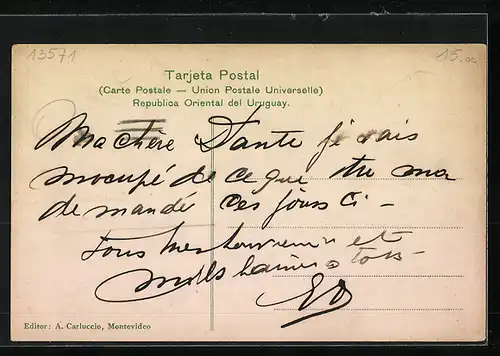 13571
15.00
Tarjeta Postal
(Carte Postale — Union Postale Universelle)
Republica Oriental del Uruguay.
Ma chère Dante je vais
m'occupé de ce que tu ma
demandé ces jours ci -
Tous mes et
mills à tous
Editor: A. Carluccio, Montevideo